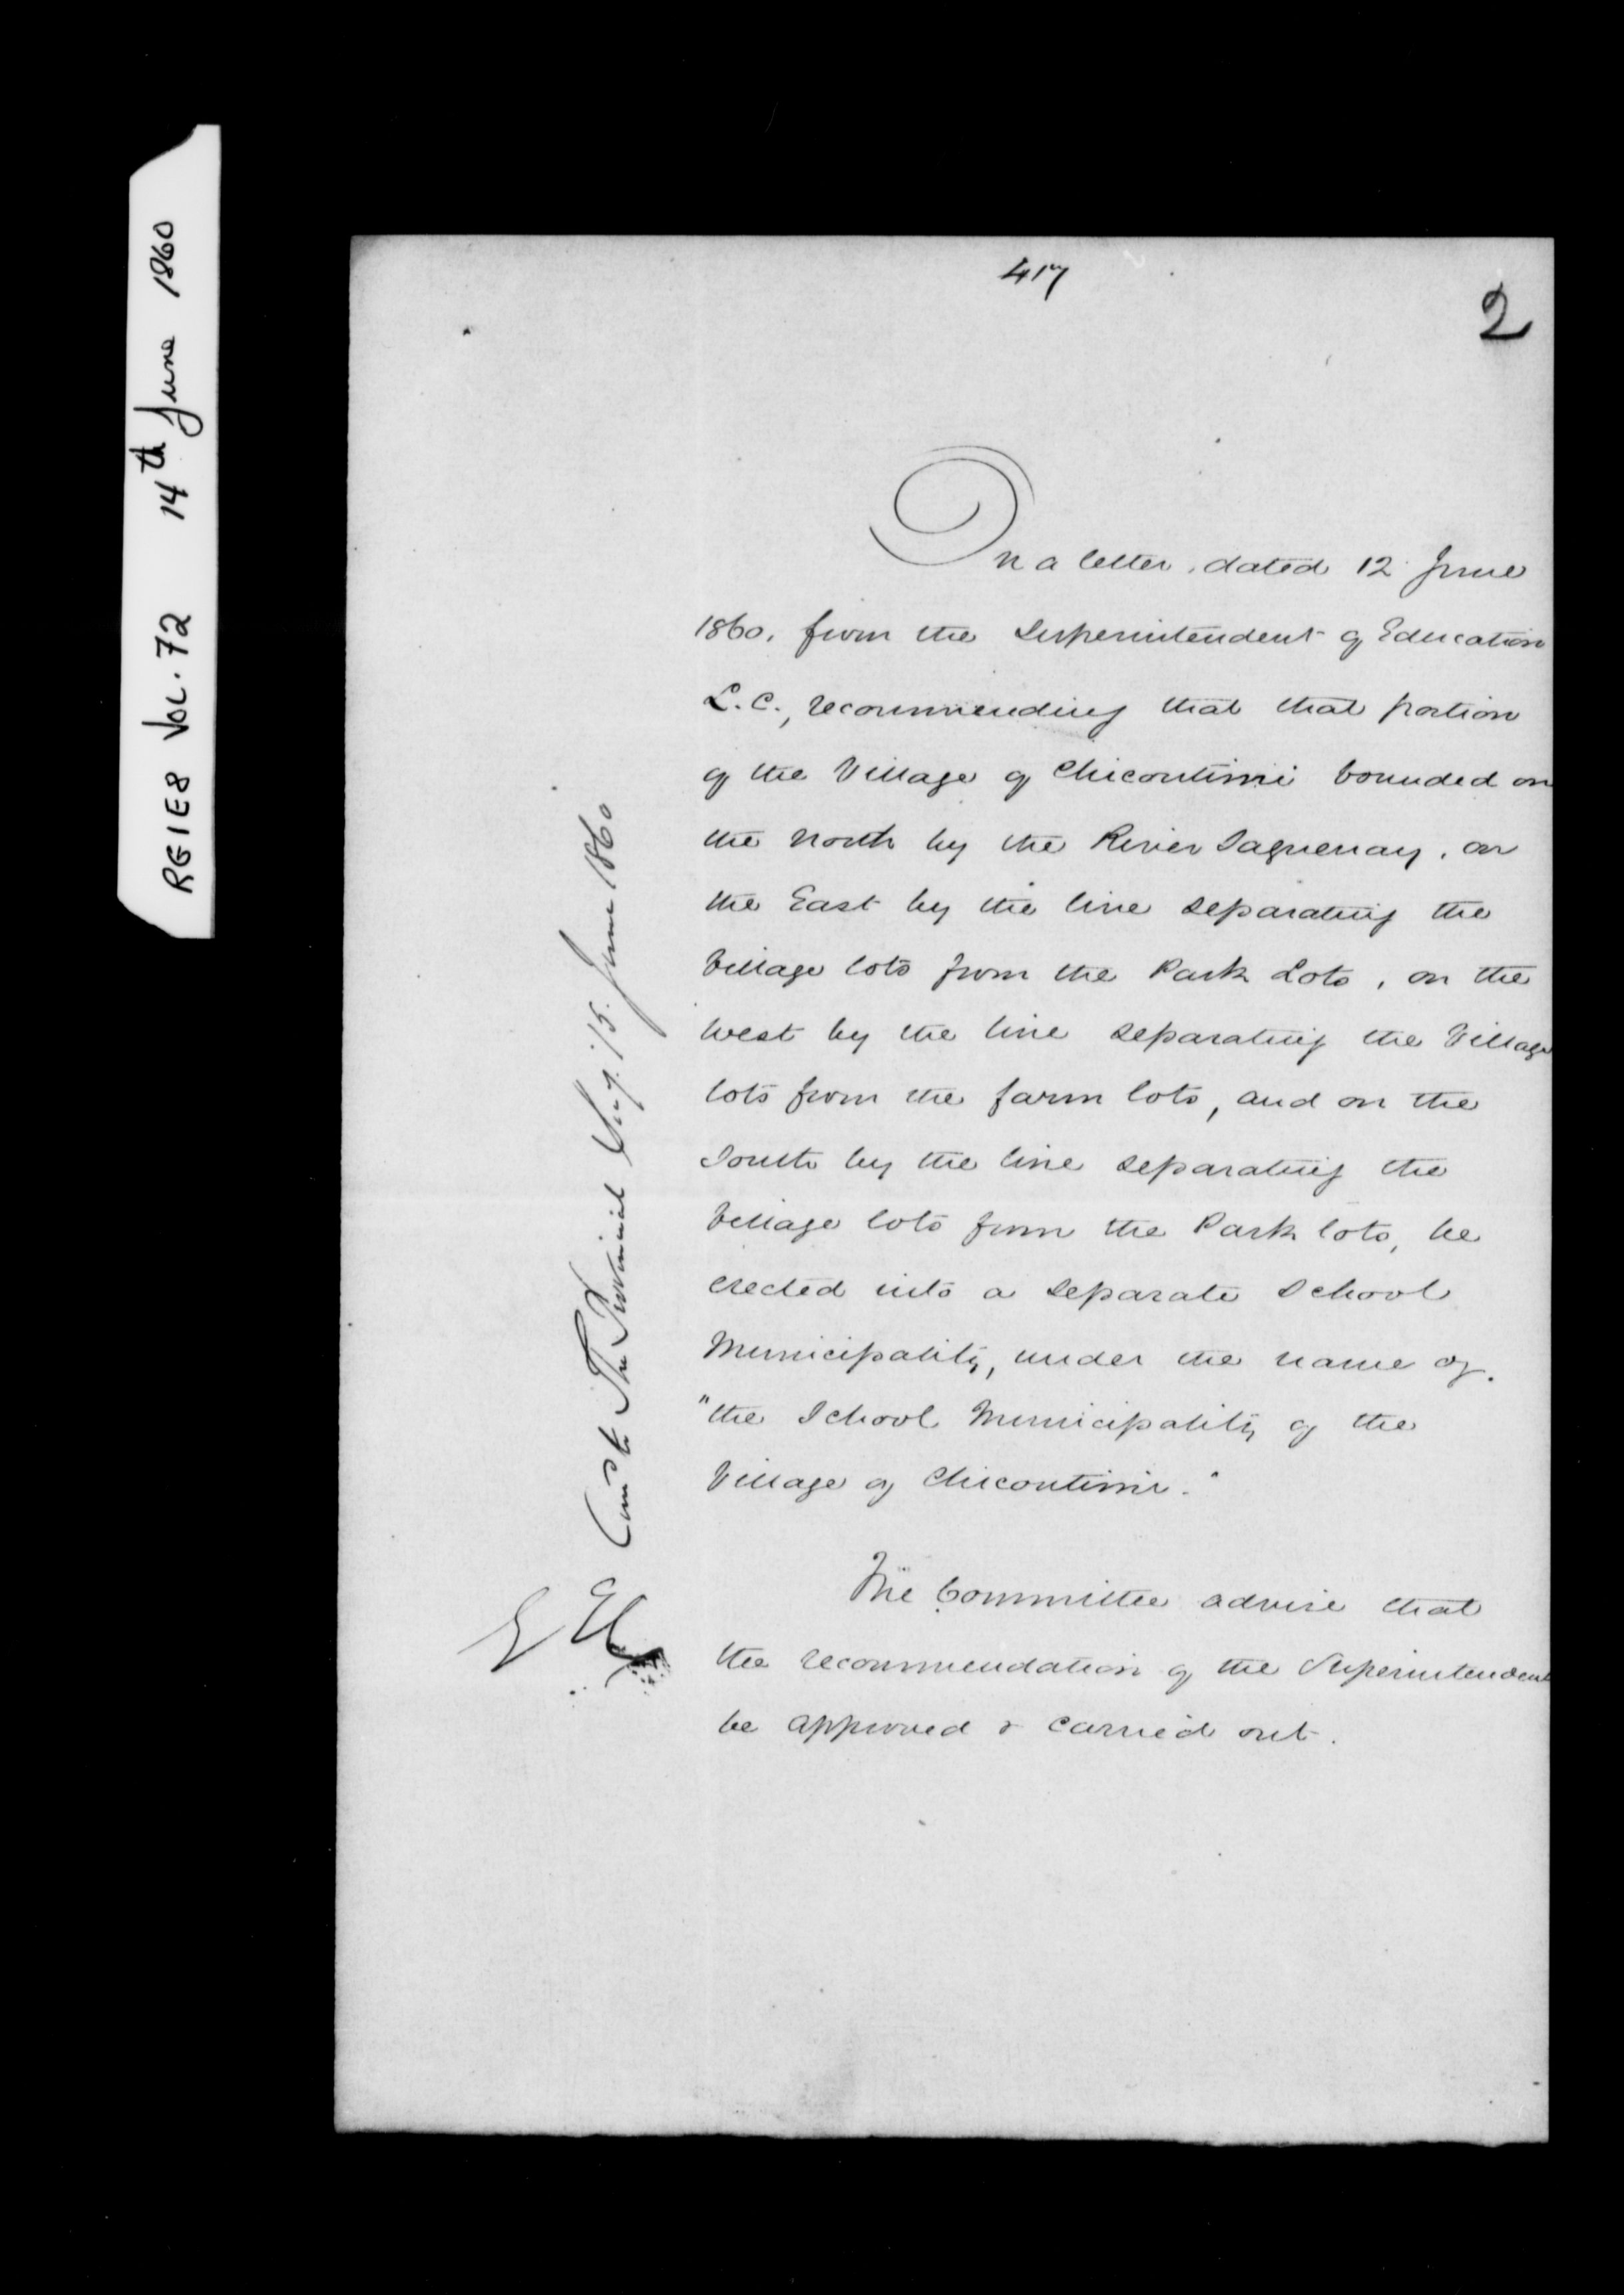 RG1E8 VOL. 72 14th June 1860
417
2
On a letter, dated 12 June
1860, from the Superintendent of Education
L.C., recommending that that portion
of the Village of Chicoutimi bounded on
the North by the River Saguenay, on
the East by the line separating the
Village lots from the Park Lots, on the
West by the line separating the Village
lots from the farm lots, and on the
South by the line separating the
Village lots from the Park lots, be
erected into a separate School
Municipality, under the name of
"the School Municipality of the
Village of Chicoutimi."
The Committee advise that
the recommendation of the Superintendent
be approved & carried out.
The Provincial Secy. 15. June 1860